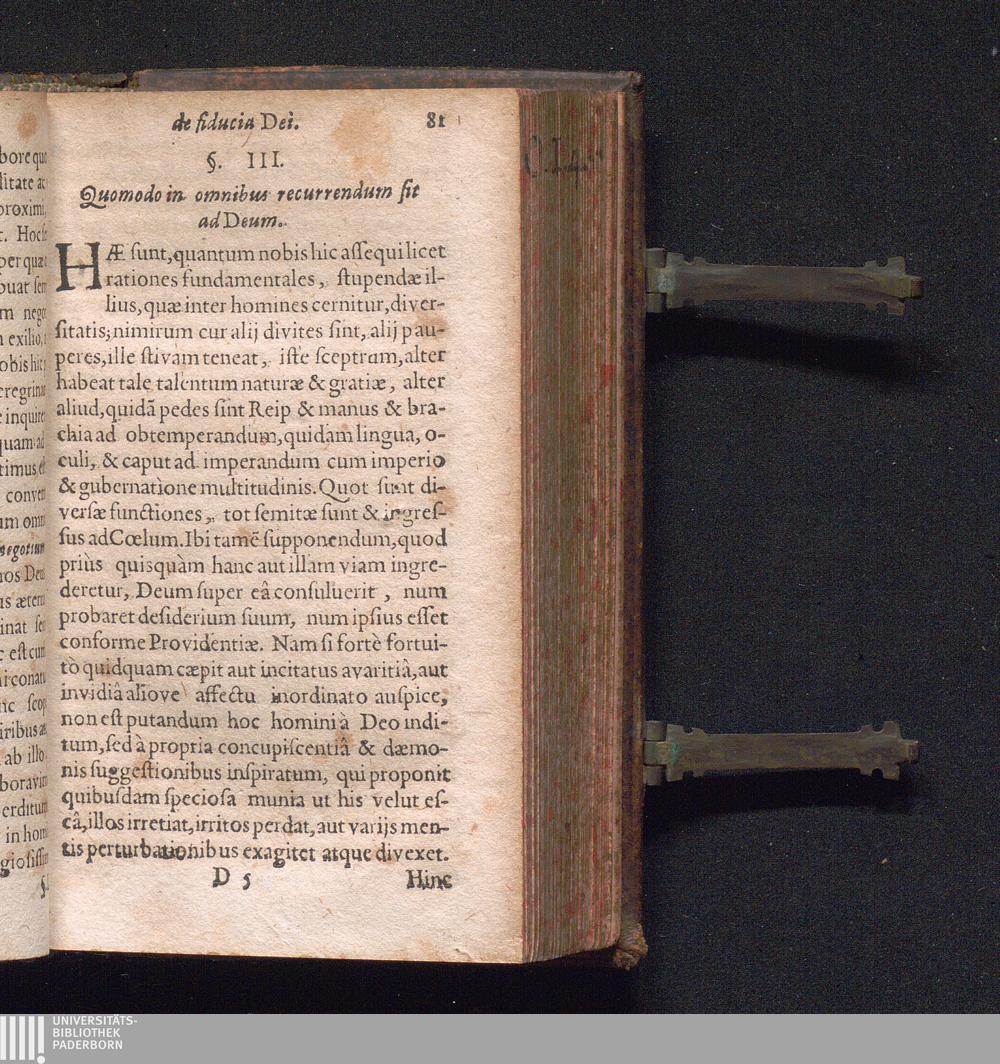 de fiducia Dei. 81
§. III.
Quomodo in omnibus recurrendum ſit
ad Deum.
HÆ ſunt, quantum nobis hic aſſequi licet
rationes fundamentales, ſtupendæ il-
lius, quæ inter homines cernitur, diver-
ſitatis; nimirum cur alij divites ſint, alij pau-
peres, ille ſtivam teneat, iſte ſceptrum, alter
habeat tale talentum naturæ & gratiæ, alter
aliud, quidā pedes ſint Reip & manus & bra-
chia ad obtemperandum, quidam lingua, o-
culi, & caput ad imperandum cum imperio
& gubernatione multitudinis. Quot ſunt di-
verſæ functiones, tot ſemitæ ſunt & ingreſ-
ſus ad Cœlum. Ibi tamē ſupponendum, quod
priùs quisquàm hanc aut illam viam ingre-
deretur, Deum ſuper eâ conſuluerit, num
probaret deſiderium ſuum, num ipſius eſſet
conforme Providentiæ. Nam ſi fortè fortui-
tò quidquam cæpit aut incitatus avaritiâ, aut
invidiâ aliove affectu inordinato auſpice,
non eſt putandum hoc homini à Deo indi-
tum, ſed à propria concupiſcentiâ & dæmo-
nis ſuggeſtionibus inſpiratum, qui proponit
quibuſdam ſpecioſa munia ut his velut eſ-
câ, illos irretiat, irritos perdat, aut varijs men-
tis perturbationibus exagitet atque divexet.
D 5 Hinc
UNIVERSITÄTS-
BIBLIOTHEK
PADERBORN